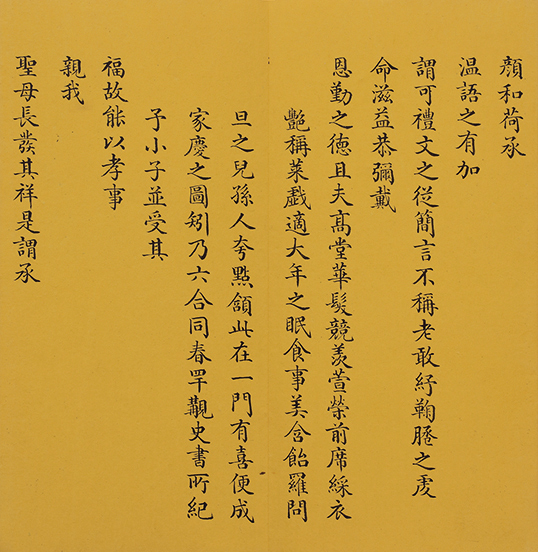 顏和荷承
温語之有加
謂可禮文之從簡言不稱老敢紓鞠𦜕之虔
命滋益恭彌戴
恩勤之德且夫高堂華髮競羨萱榮前席綵衣
艷稱萊戲適大年之眠食事美含飴羅問
旦之兒孫人夸點頷此在一門有喜便成
家慶之圖矧乃六合同春罕覯史書所紀
予小子並受其
福故能以孝事
親我
聖母長發其祥是謂承